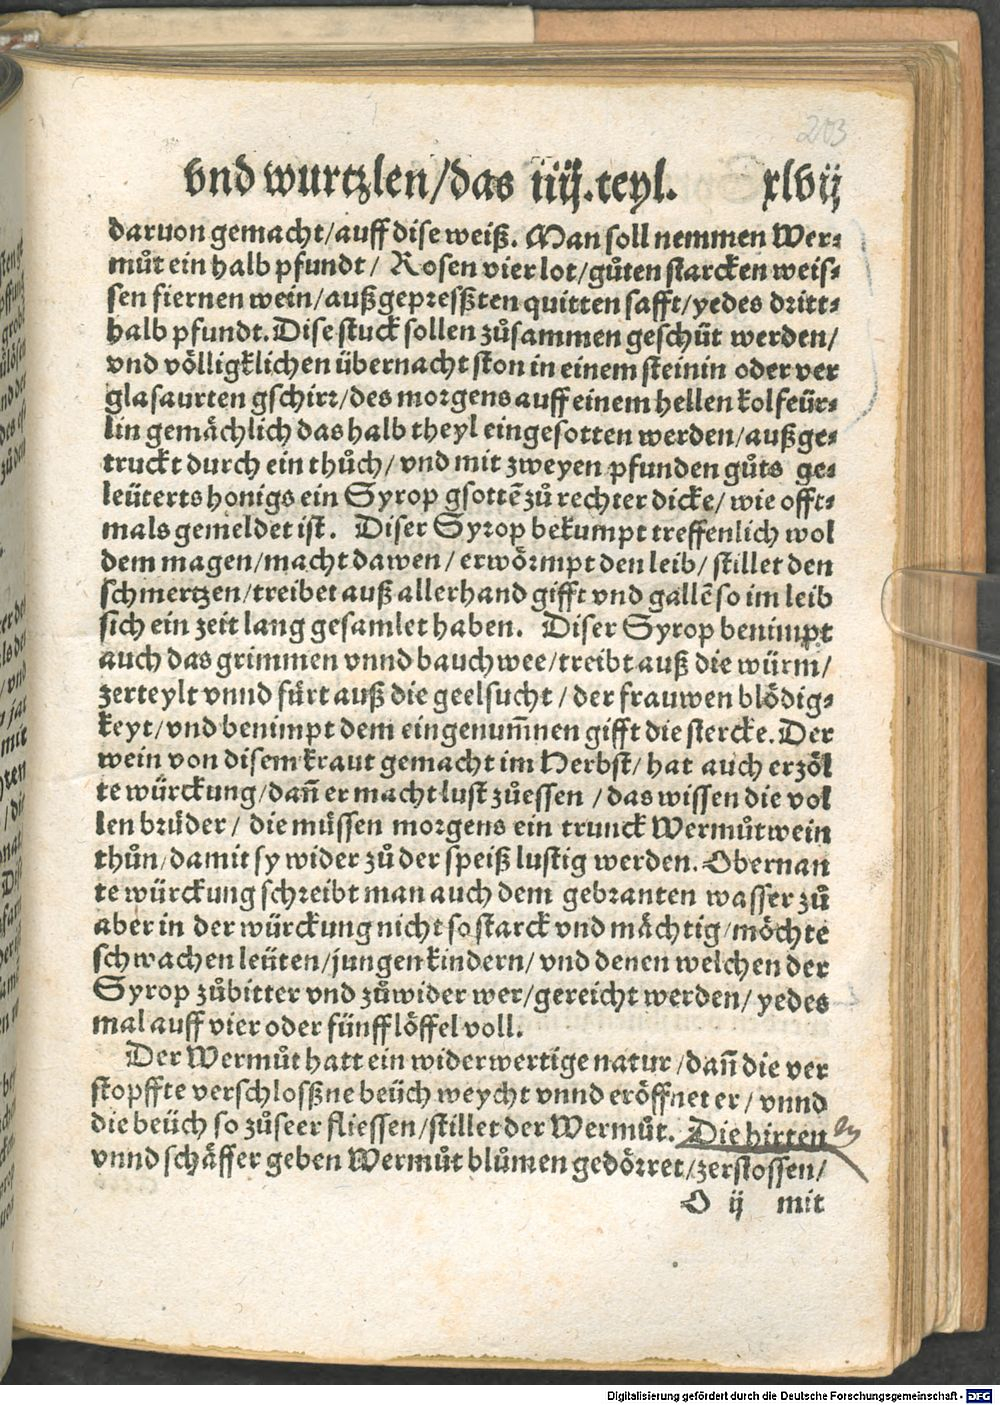 203
vnd wurtzlen/das iiij.teyl. xlvij
daruon gemacht/auff dise weiß. Man soll nemmen Wer-
můt ein halb pfundt/ Rosen vier lot/gůten starcken weis-
sen fiernen wein/außgepresßten quitten safft/yedes dritt-
halb pfundt. Dise stuck sollen zůsammen geschüt werden/
vnd völligklichen übernacht ston in einem steinin oder ver
glasaurten gschirr/des morgens auff einem hellen kolfeür-
lin gemächlich das halb theyl eingesotten werden/außge-
truckt durch ein thůch/vnd mit zweyen pfunden gůts ge-
leüterts honigs ein Syrop gsottē zů rechter dicke/wie offt-
mals gemeldet ist. Diser Syrop bekumpt treffenlich wol
dem magen/macht dawen/erwörmpt den leib/stillet den
schmertzen/treibet auß allerhand gifft vnd gallē so im leib
sich ein zeit lang gesamlet haben. Diser Syrop benimpt
auch das grimmen vnnd bauchwee/treibt auß die würm/
zerteylt vnnd fürt auß die geelsucht/der frauwen blödig-
keyt/vnd benimpt dem eingenum̄nen gifft die stercke. Der
wein von disem kraut gemacht im Herbst/hat auch erzöl
te würckung/dañ er macht lust zůessen/das wissen die vol
len brüder/ die müssen morgens ein trunck Wermůtwein
thůn/damit sy wider zů der speiß lustig werden. Obernan
te würckung schreibt man auch dem gebranten wasser zů
aber in der würckung nicht so starck vnd mächtig/möchte
schwachen leüten/jungen kindern/vnd denen welchen der
Syrop zůbitter vnd zůwider wer/gereicht werden/yedes
mal auff vier oder fünff löffel voll.
Der Wermůt hatt ein widerwertige natur/dañ die ver
stopffte verschlosßne beüch weycht vnnd eröffnet er/vnnd
die beüch so zůseer fliessen/stillet der Wermůt. Die hirten
vnnd schäffer geben Wermůt blůmen gedörret/zerstossen/
O ij mit
Digitalisierung gefördert durch die Deutsche Forschungsgemeinschaft - DFG